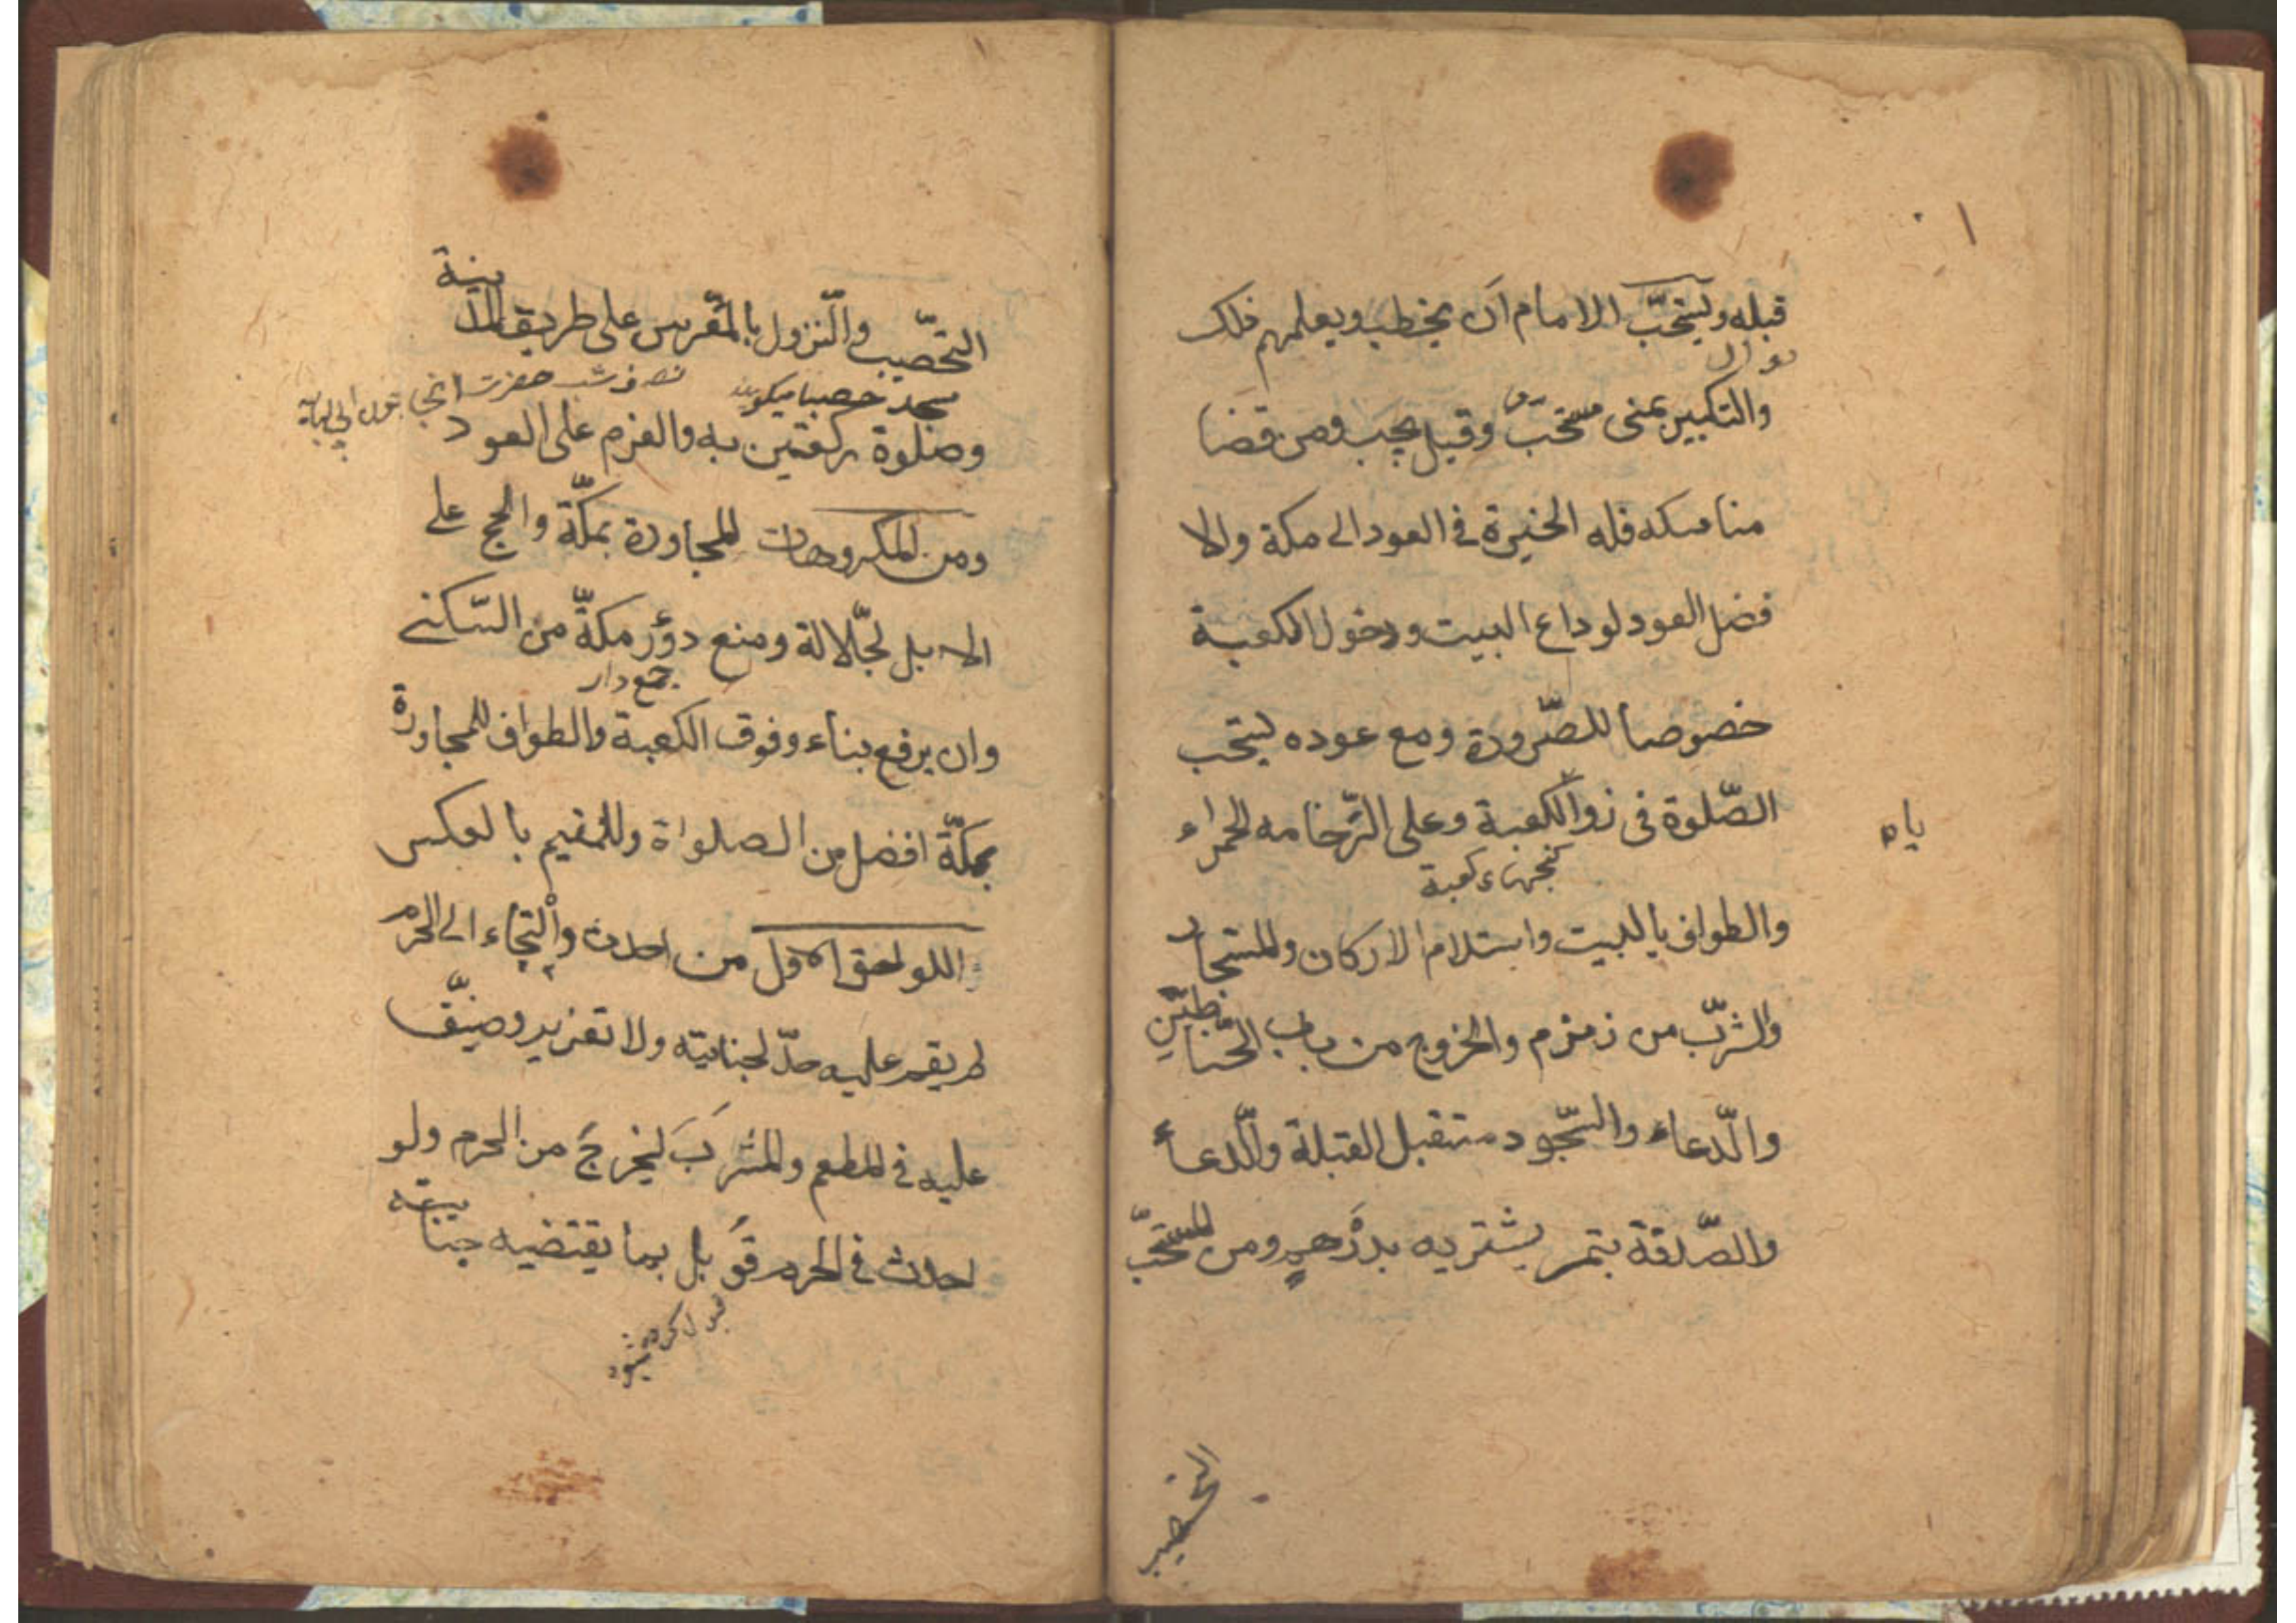 قبله ويستحبّ الامام ان يخطب ويعلمهم ذلك
والتكبير بمنى مستحبّ وقيل يجب ومن قضا
مناسكه فله الخيرة في العود الى مكة والا
فضل العود لوداع البيت ودخول الكعبة
خصوصا للصّرورة ومع عوده يستحب
الصّلوة فى زوا الكعبة وعلى الرّخامه الحمراء
ياه
كنجهاء كعبة
والطواف بالبيت واستلام الاركان والمستجار
والشرّب من زمزم والخروج من باب الحنّاطين
والدّعاء والسّجود مستقبل القبلة والدّعاء
والصّدقة بتمر يشتريه بدرهم ومن المستحبّ
التحصيب
التحصّيب والنّزول بالمعّرس على طريق المدينة
مسجد حصبا ميكويند
وصلوة ركعتين به والعزم على العود
ومن المكروهات المجاورة بمكّة والحج على
الابل الجّلالة ومنع دؤر مكّة من السّكنى
جمع دار
وان يرفع بناء وفوق الكعبة والطواف للمجاورة
بمكّة افضل من الصلواة وللمقيم بالعكس
اللواحق الاول من احدث والتجاء الى الحرم
لم يقم عليه حدّ لجنايته ولا تعزير وضيّق
عليه فى المطعم والمشرب ليخرج من الحرم ولو
احدث في الحرم قوبل بما يقتضيه جنايته